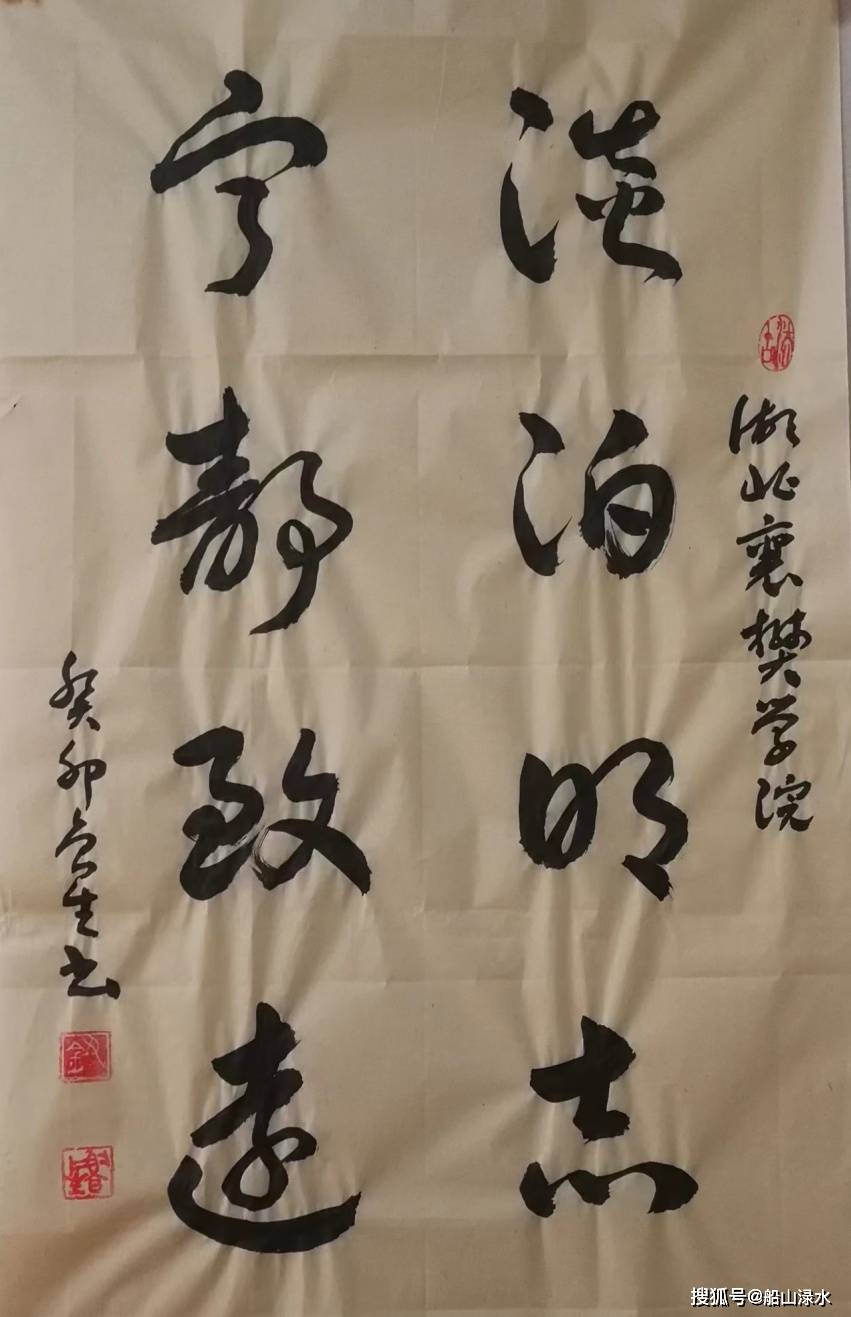 湖北襄樊学院
淡泊明志
宁静致远
癸卯
生书
搜狐号@船山渌水